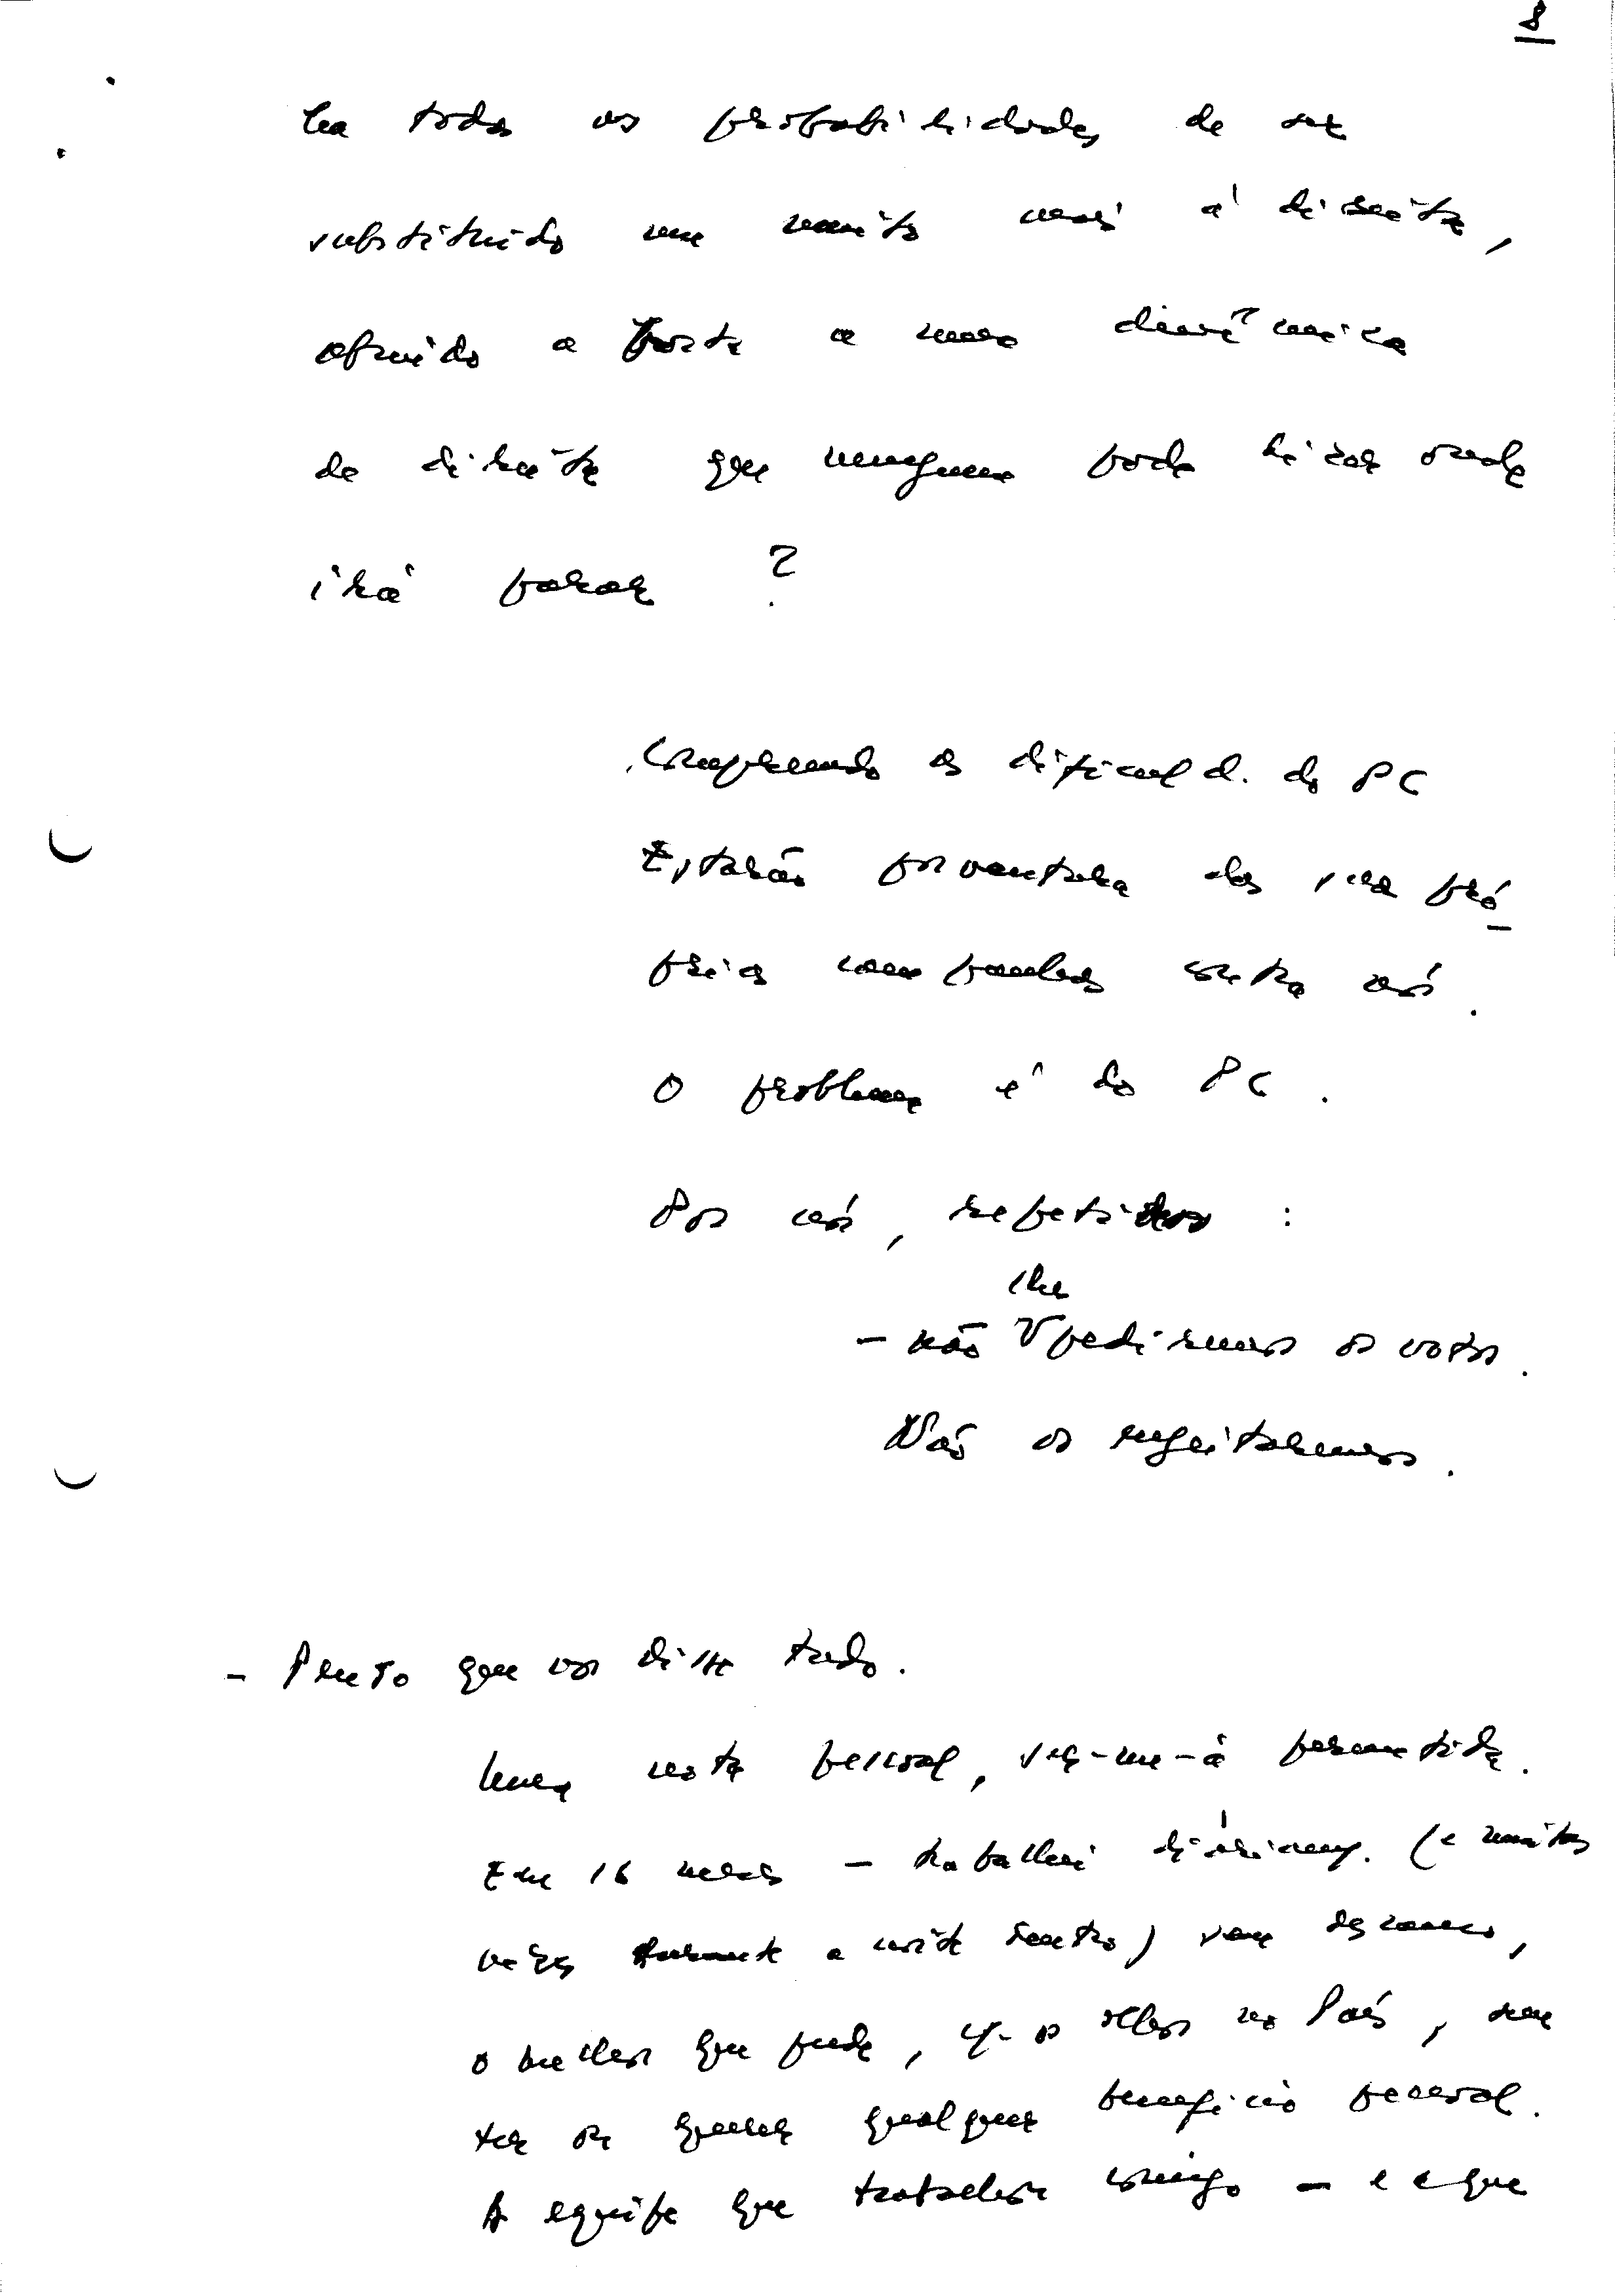 8
ria todas as probabilidades de ser
substituído um muito mais à direita,
abrindo a porta a uma dinâmica
de direita que ninguém pode dizer onde
irá parar ?
Compreendo as dificuld. do PC
Estarão porventura das suas pró
prias campanhas contra nós.
O problema é do PC.
Por nós, repetimos :
lhe
- não V pediremos os votos.
Não os rejeitaremos.
- Penso que vos disse tudo.
Uma nota pessoal, seja-me-á permitida.
Em 16 meses - trabalhei diáriam. (e muitas
vezes durante a noite dentro) sem descanso,
o melhor que pude, c/ os olhos no País, sem
ter ou querer qualquer benefício pessoal.
A equipe que trabalhou comigo - e a que